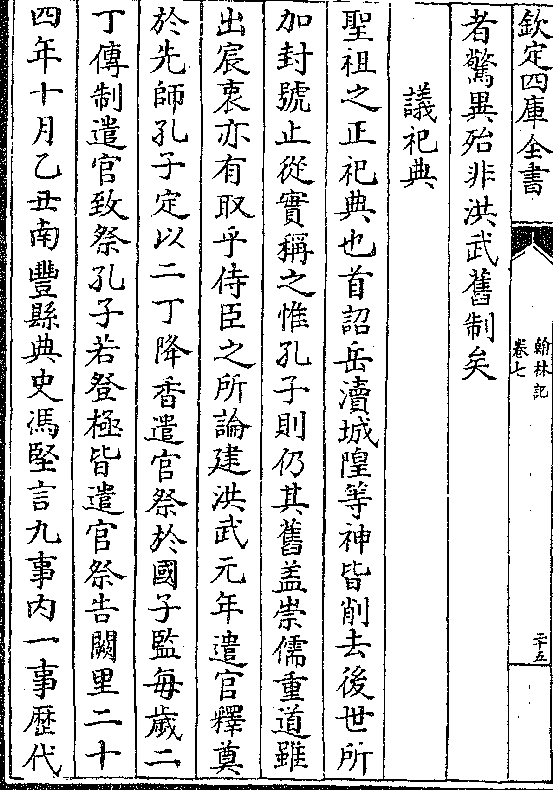 欽定四庫全書
翰林記
卷七
二十五
者驚異殆非洪武舊制矣
議祀典
聖祖之正祀典也首詔岳瀆城隍等神皆削去後世所
加封號止從實稱之惟孔子則仍其舊盖崇儒重道雖
出宸衷亦有取乎侍臣之所論建洪武元年遣官釋奠
於先師孔子定以二丁降香遣官祭於國子監每歲二
丁傳制遣官致祭孔子若登極皆遣官祭告闕里二十
四年十月乙丑南豐縣典史馮堅言九事内一事歴代